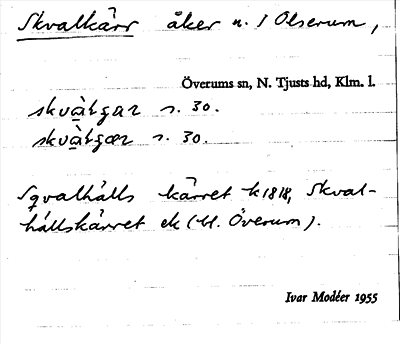 Skvalkärr åker n. / Olserum,
Överums sn, N. Tjusts hd, Klm. l.
s. 30.
s. 30.
Sqvalhålls kärret k 1818, Skval-
hållskärret ek (bl. Överum).
Ivar Modéer 1955